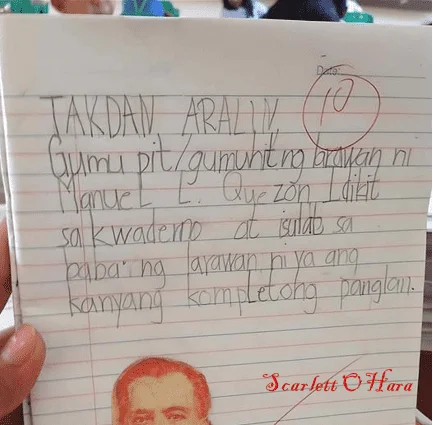 Date:
10
TAKDAN ARALIN
Gumupit/gumuhit ng larawan ni
Manuel L. Quezon Idikit
sa kwaderno at isulat sa
baba ng larawan niya ang
kanyang kompletong panglan.
Scarlett O Hara